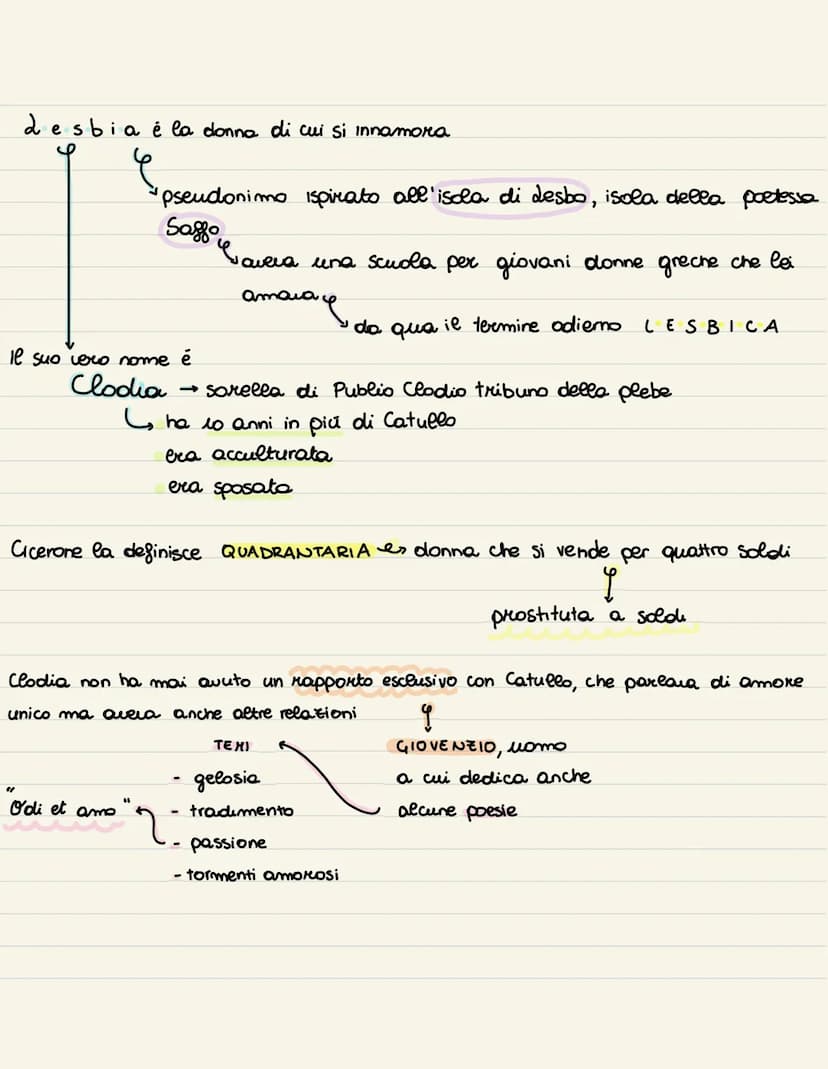 Lesbia é la donna di cui si innamora
pseudonimo ispirato all'isola di Lesbo, isola della poetessa
Saffo
aveva una scuola per giovani donne greche che lei
amava
da qua il termine odierno LESBICA
Il suo vero nome é
Clodia → sorella di Publio Clodio tribuno della plebe
ha 10 anni in piú di Catullo
era acculturata
era sposata
Cicerone la definisce QUADRANTARIA donna che si vende per quattro soldi
prostituta a soldi
Clodia non ha mai avuto un rapporto esclusivo con Catullo, che parlava di amore
unico ma aveva anche altre relazioni
TEMI
- gelosia
- tradimento
- passione
- tormenti amorosi
"Odi et amo"
GIOVENZIO, uomo
a cui dedica anche
alcune poesie